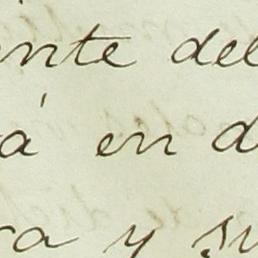 inte del
á en d
ra y su